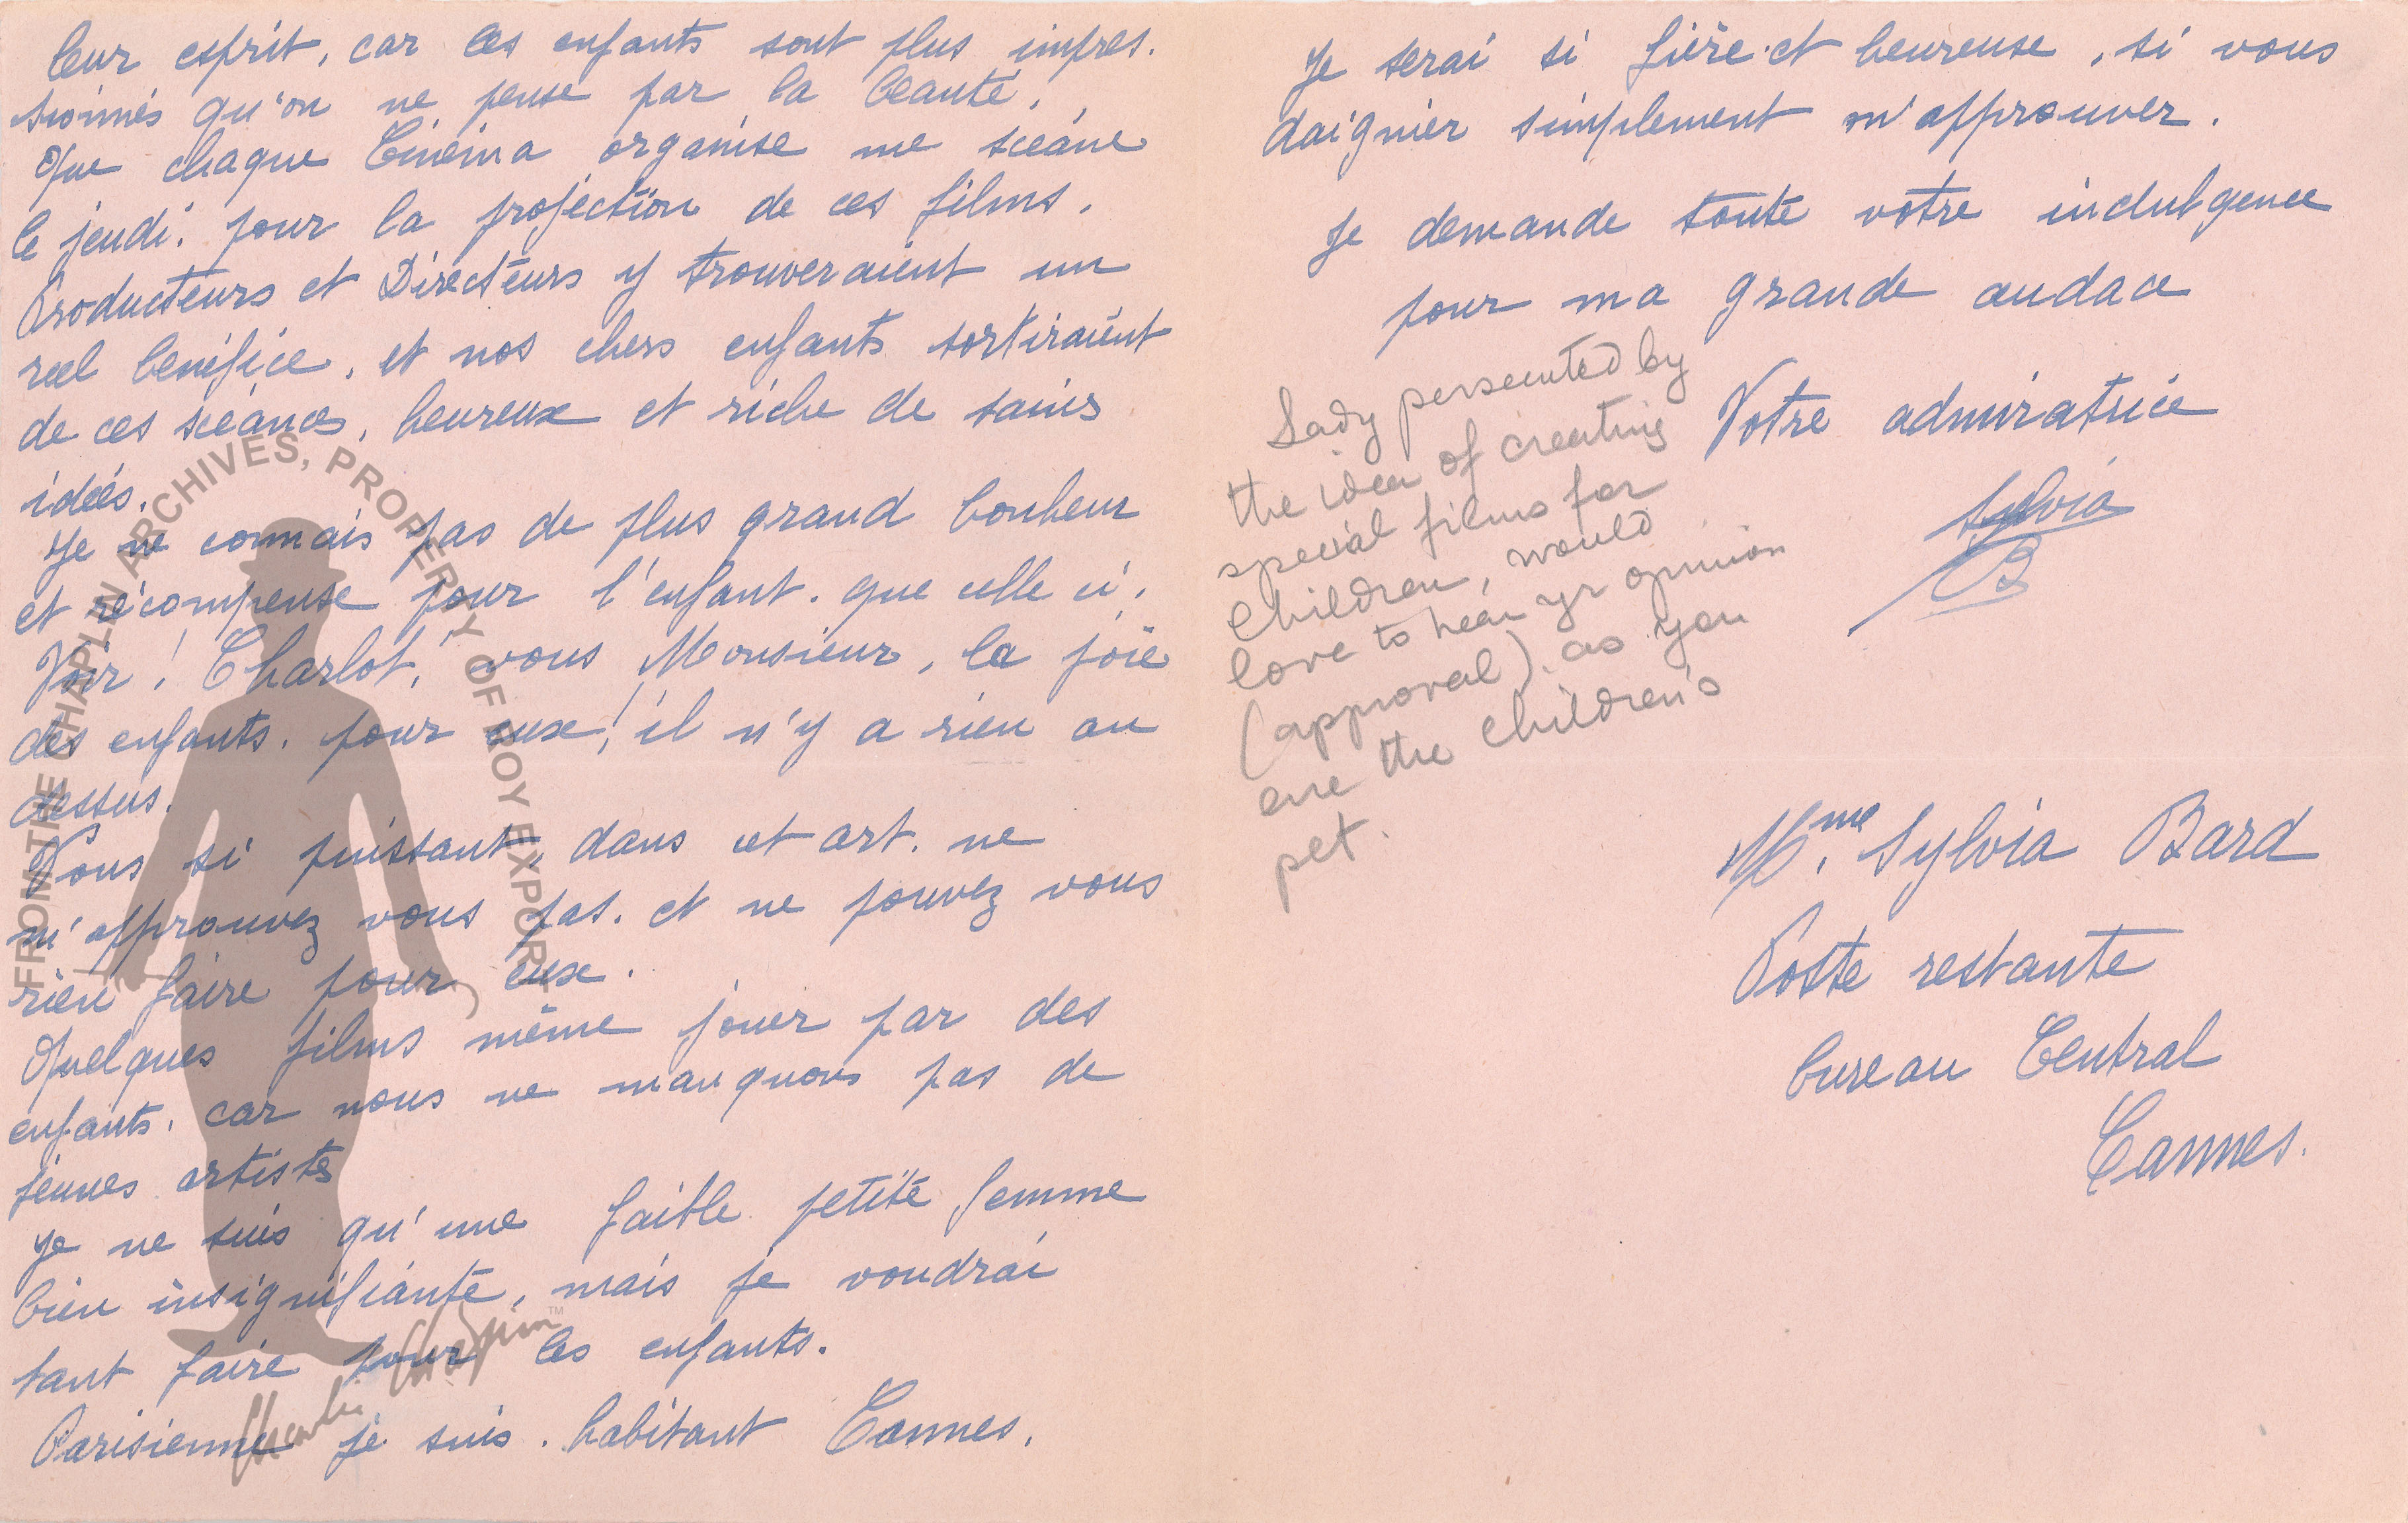 leur esprit, car les enfants sont plus impres.
sionnés qu'on ne pense par la beauté.
Que chaque Cinéma organise une scéance
le jeudi. pour la projection de ces films.
Producteurs et Directeurs y trouveraient un
reel benéfice, et nos chers enfants sortiraient
de ces scéances, heureux et riche de sains
idées.
Je ne connais pas de plus grand bonheur
et récompense pour l'enfant. que celle ci,
Voir! Charlot! vous Monsieur, la joie
des enfants. pour eux! il n'y a rien au
dessus.
Vous si puissant, dans cet art. ne
m'approuvez vous pas. et ne pouvez vous
rien faire pour eux.
Quelques films même jouer par des
enfants. car nous ne manquons pas de
jeunes artistes
Je ne suis qu'une faible petite femme
bien insignifiante, mais je voudrai
tant faire pour les enfants.
Parisienne je suis. habitant Cannes.
Je serai si fière et heureuse, si vous
daignier simplement m'approuver.
Je demande toute votre indulgence
pour ma grande audace
Votre admiratrice
Sylvia
B
Lady persecuted by
the idea of creating
special films for
children, would
love to hear yr opinion
(approval), as you
are the children's
pet.
Mme. Sylvia Bard
Poste restante
bureau Central
Cannes.
FROM THE CHAPLIN ARCHIVES, PROPERTY OF ROY EXPORT
Charlie Chaplin™